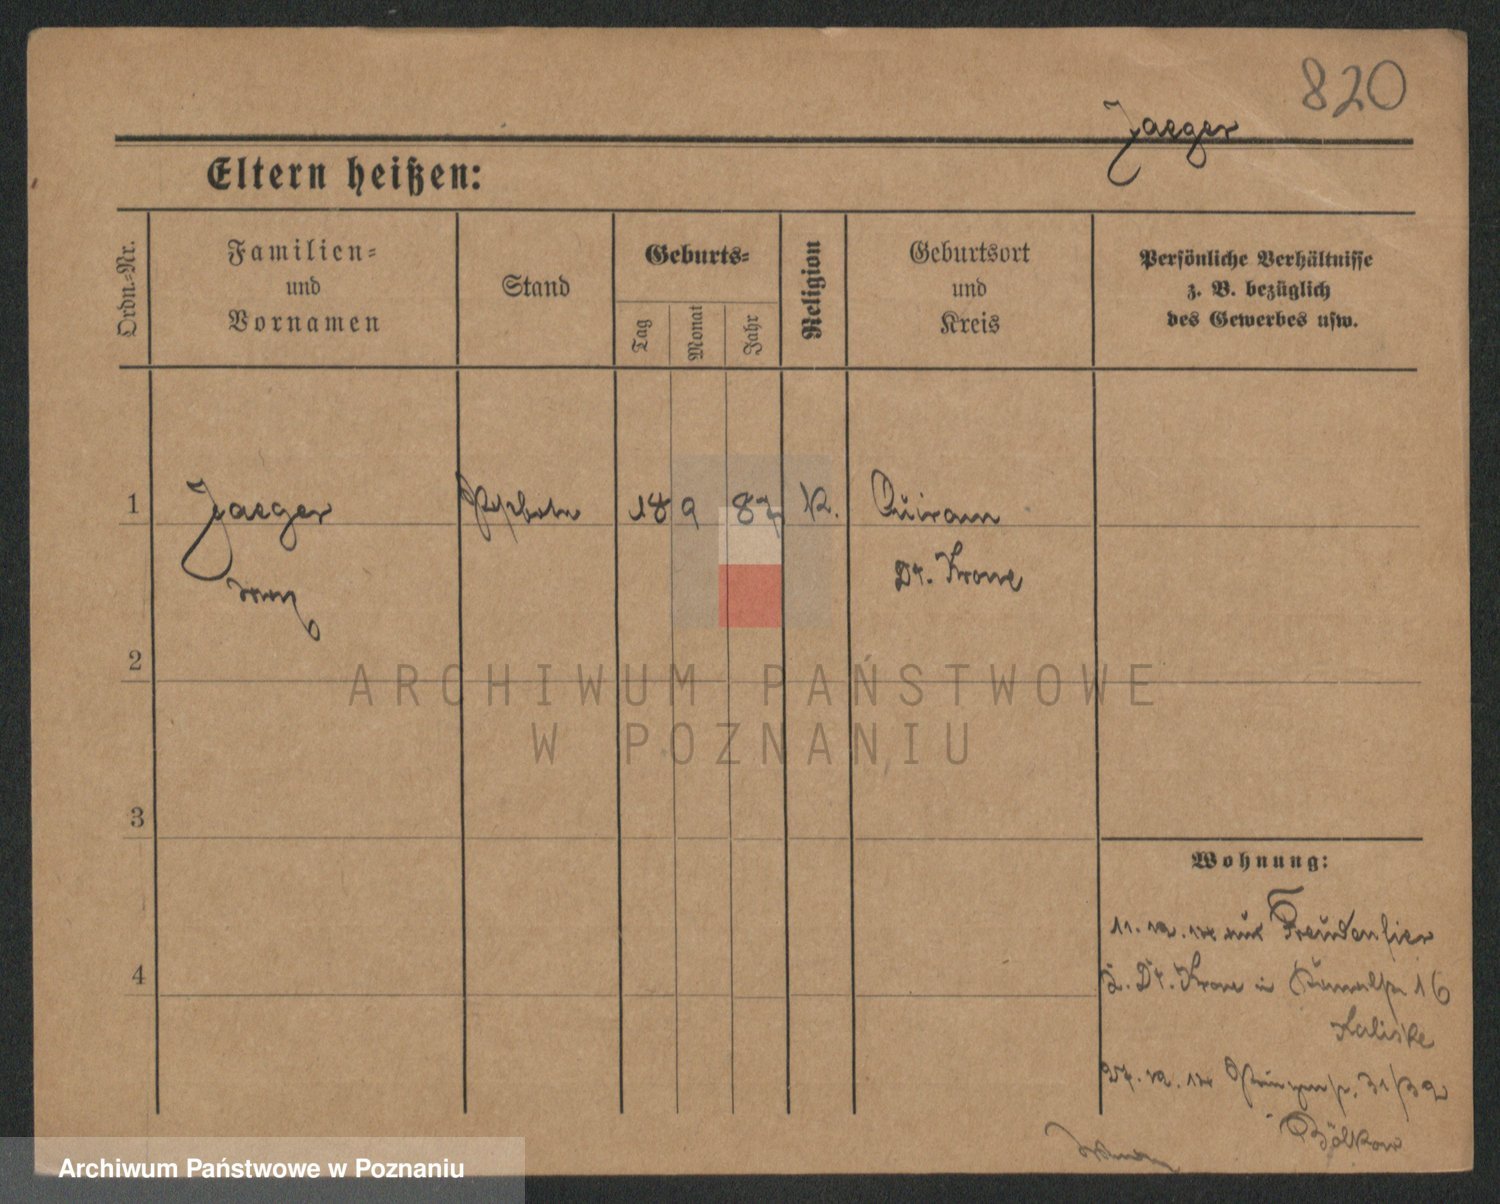 820
Jaeger
Eltern heißen:
Ordn.-Nr.
Familien-
und
Vornamen
Stand
Geburts-
Tag
Monat
Jahr
Religion
Geburtsort
und
Kreis
Persönliche Verhältnisse
z. B. bezüglich
des Gewerbes usw.
1 Jaeger 18 9 87 K. Quiram
Dt. Krone
2
3
4
Wohnung:
Freudenfier
Dt. Krone in 16
Kaliske
31/32
Bölkow
ARCHIWUM PAŃSTWOWE
W POZNANIU
Archiwum Państwowe w Poznaniu